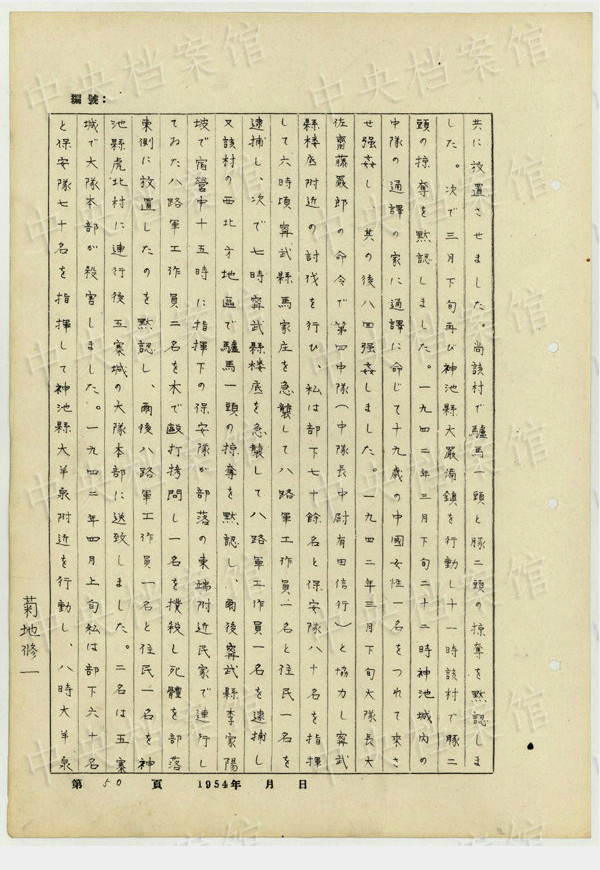 編號：
共に放置させました。尚該村で驢馬一頭と豚二頭の掠奪を黙認しま
した。次で三月下旬再び神池縣大嚴備鎮を行動し十一時該村で豚二
頭の掠奪を黙認しました。一九四二年三月下旬二十二時神池城内の
中隊の通譯の家に通譯に命じて十九歳の中國女性一名をつれて来さ
せ强姦し、其の後八四强姦しました。一九四二年三月下旬大隊長大
佐齋藤嚴郎の命令で第四中隊（中隊長中尉有田信行）と協力し寗武
縣楼底附近の討伐を行ひ、私は部下七十餘名と保安隊八十名を指揮
して六時頃寗武縣馬家庄を急襲して八路軍工作員一名と住民一名を
逮捕し、次で七時寗武縣楼底を急襲して八路軍工作員一名を逮捕し
又該村の西北方地區で驢馬一頭の掠奪を黙認し、爾後寗武縣李家陽
坡で宿營中十五時に指揮下の保安隊が部落の東端附近民家で連行し
てゐた八路軍工作員二名を木で毆打拷問し一名を撲殺し死體を部落
東側に放置したのを黙認し、爾後八路軍工作員一名と住民一名を神
池縣虎北村に連行後五寨城の大隊本部に送致しました。二名は五寨
城で大隊本部が殺害しました。一九四二年四月上旬私は部下六十名
と保安隊七十名を指揮して神池縣大羊泉附近を行動し、八時大羊泉
菊地修一
第 50 頁 1954年 月 日
中央档案馆